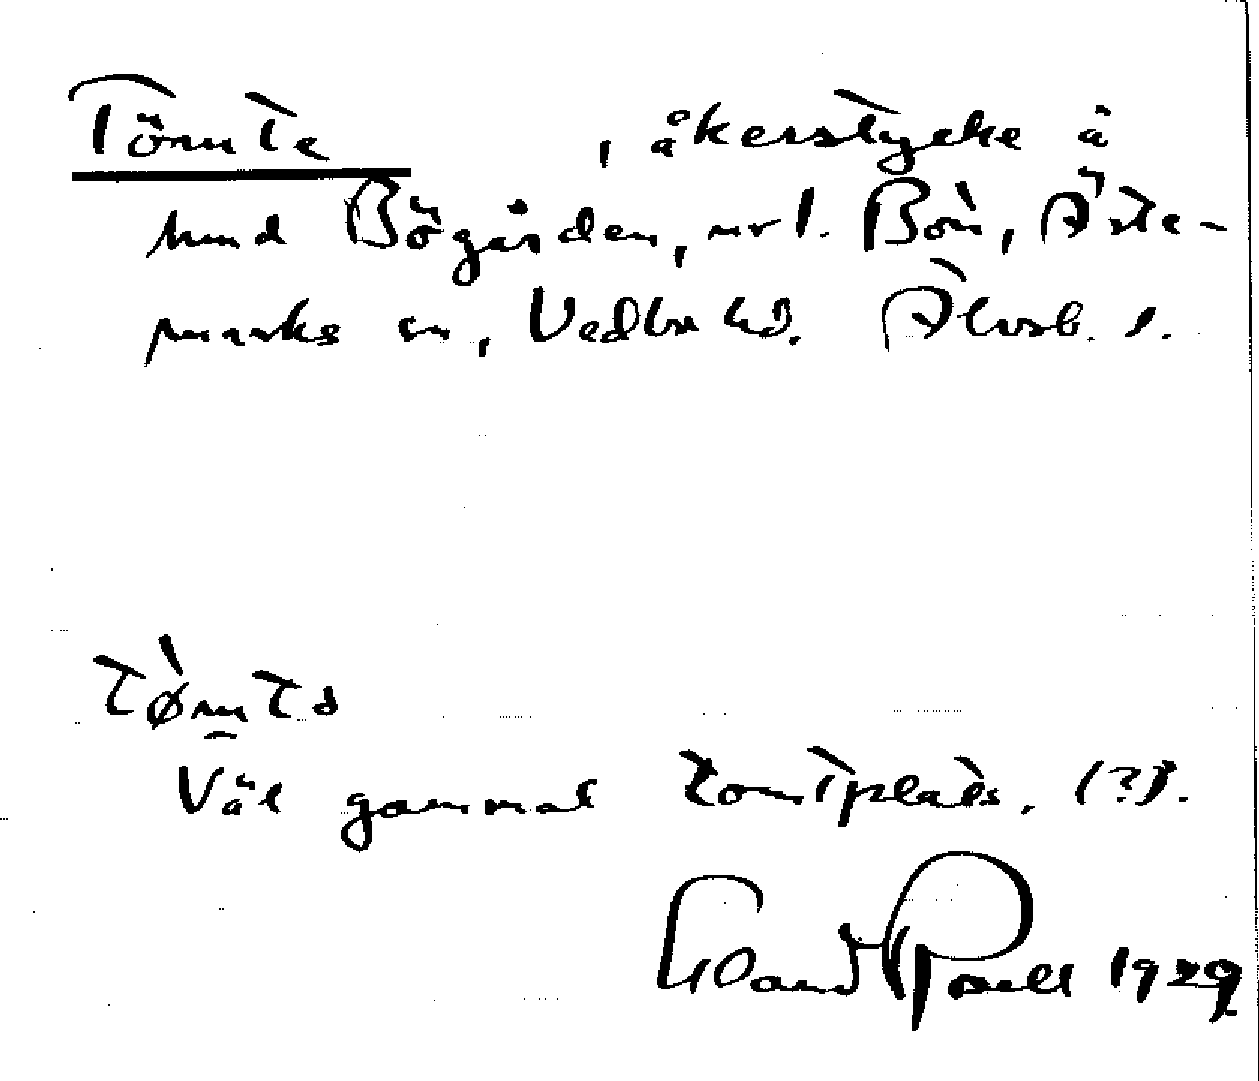 Tömte , åkerstycke å
hmd Bögården, nr 1. Bön, Ärte-
marks sn, Vedbo hd. Älvsb. l.
tø̀mtə
Väl gammal tomtplats. (?).
1929